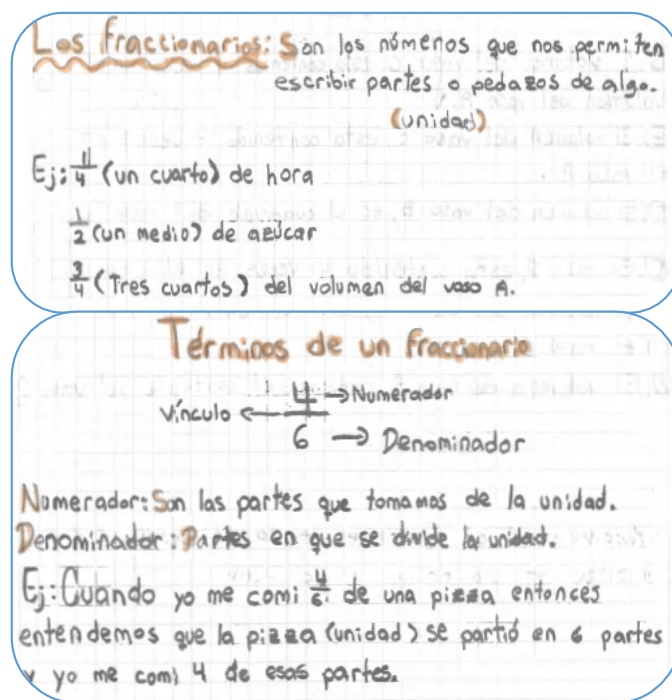 Los fraccionarios: Son los números que nos permiten
escribir partes o pedazos de algo.
(unidad)
Ej: 1/4 (un cuarto) de hora
1/2 (un medio) de azúcar
3/4 (Tres cuartos) del volumen del vaso A.
Términos de un fraccionario
4 → Numerador
Vínculo ←
6 → Denominador
Numerador: Son las partes que tomamos de la unidad.
Denominador: Partes en que se divide la unidad.
Ej: Cuando yo me comi 4/6 de una pizza entonces
entendemos que la pizza (unidad) se partió en 6 partes
y yo me comi 4 de esas partes.